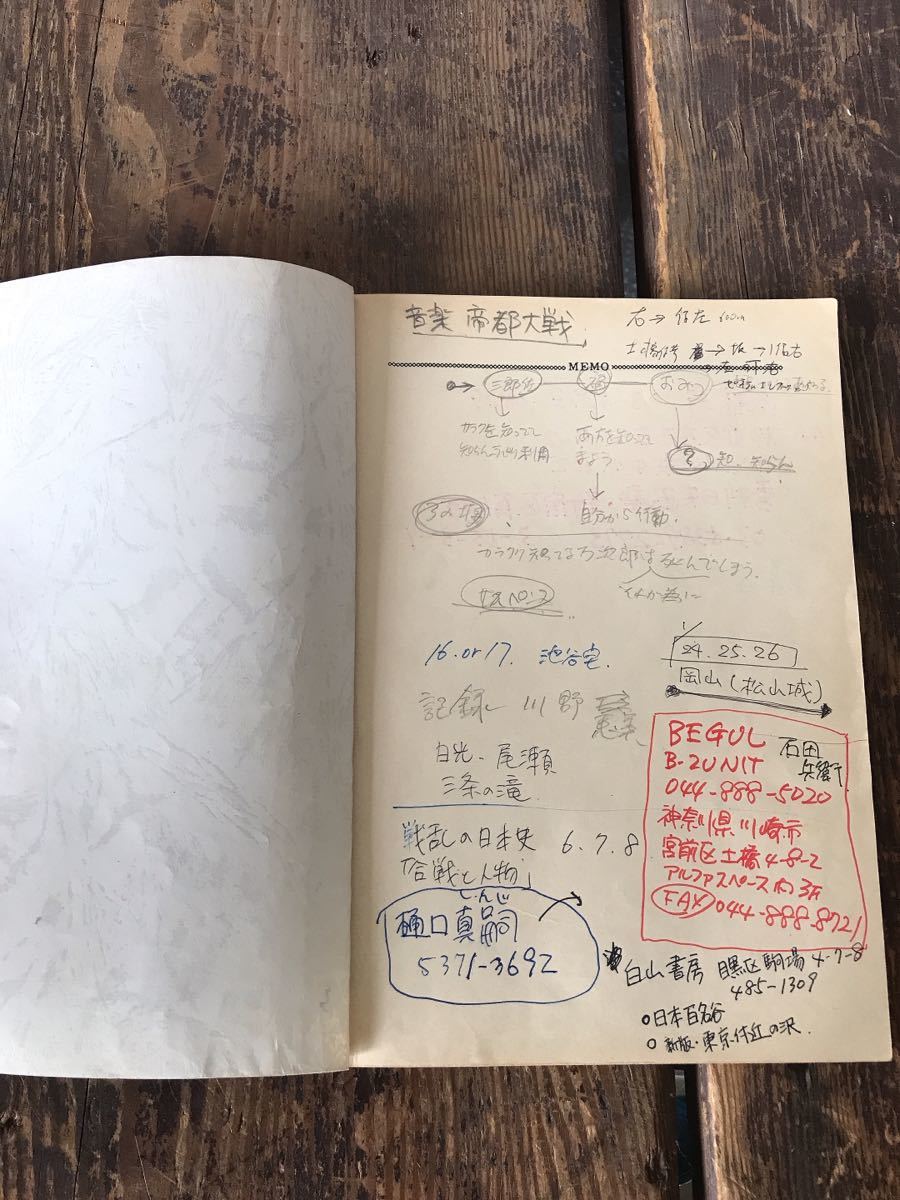 音楽 帝都大戦
右→ 佐左 600m
土橋信号 → 坂 →
MEMO
三郎佐
おみつ
カラクを知ってて
知らん ふり 利用
両方を知ってて
まよう
?
知、知らん
自分から行動、
カラクリ知ってる万次郎は死んでしまう。
16.or17. 池谷宅
24.25.26
岡山(松山城)
記録 川野
白光、尾瀬
三条の滝
BEGUL 石田
B-2UNIT 兵衛
044-888-5020
神奈川県川崎市
宮前区土橋4-8-2
アルファスペース
FAX 044-888-8721
戦乱の日本史 6.7.8
「合戦と人物」
しんじ
樋口真嗣
5371-3692
白山書房 目黒区駒場4-7-8
485-1309
○日本百名谷
○新版・東京付近の沢